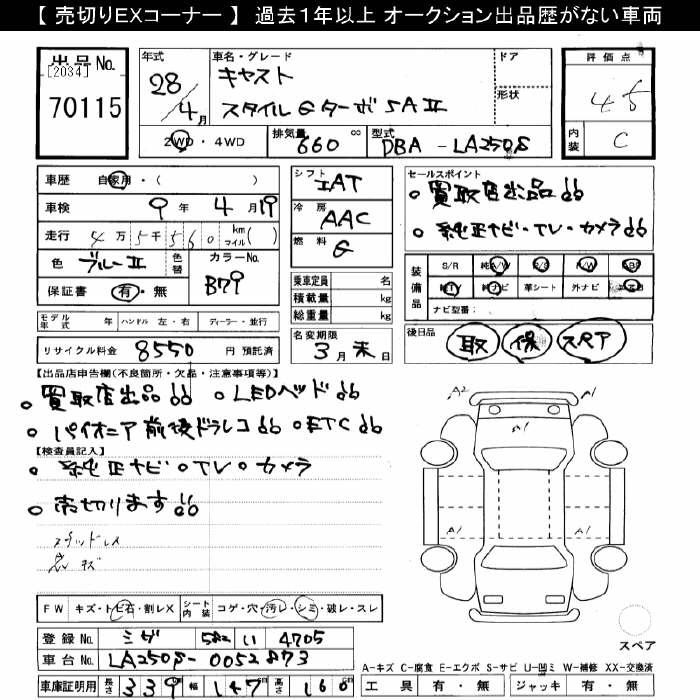 【 売切りEXコーナー 】 過去1年以上 オークション出品歴がない車両
出品No. [2034] 70115
年式 28/4月
車名・グレード キャスト スタイル Gターボ SAⅡ
ドア
形状
評価点 4.5
内装 C
2WD・4WD
排気量 660 cc
型式 DBA-LA250S
車歴 自家用・( )
車検 9年 4月 19
走行 4万 5千 560 km マイル( )
色 ブルーⅡ 色替
カラーNo. B79
保証書 有・無
シフト IAT
冷房 AAC
燃料 G
乗車定員 名
積載量 kg
総重量 kg
セールスポイント
。買取店出品!!
。純正ナビ・TV・カメラ!!
装備品 S/R 純A/W P/S P/W ABS
純TV 純ナビ 革シート 外ナビ
ナビ型番:
モデル年式 年 ハンドル 左・右 ディーラー・並行
リサイクル料金 8550 円 預託済
名変期限 3月 末日
後日品 取 保 スペア
【出品店申告欄(不良箇所・欠品・注意事項等)】
。買取店出品!! 。LEDヘッド!!
。パイオニア前後ドラレコ!! 。ETC!!
【検査員記入】
。純正ナビ・TV・カメラ
。売切ります!!
A2 A1
A1 A1
FW キズ・トビ石・割レX シート内装 コゲ・穴・汚レ・シミ・破レ・スレ
登録No. ミゲ 582 い 4705
車台No. LA250S-0052873
車庫証明用 長さ 339 幅 147 高さ 160
スペア
A-キズ C-腐食 E-エクボ S-サビ U-凹ミ W-補修 XX-交換済
工具 有・無 ジャッキ 有・無